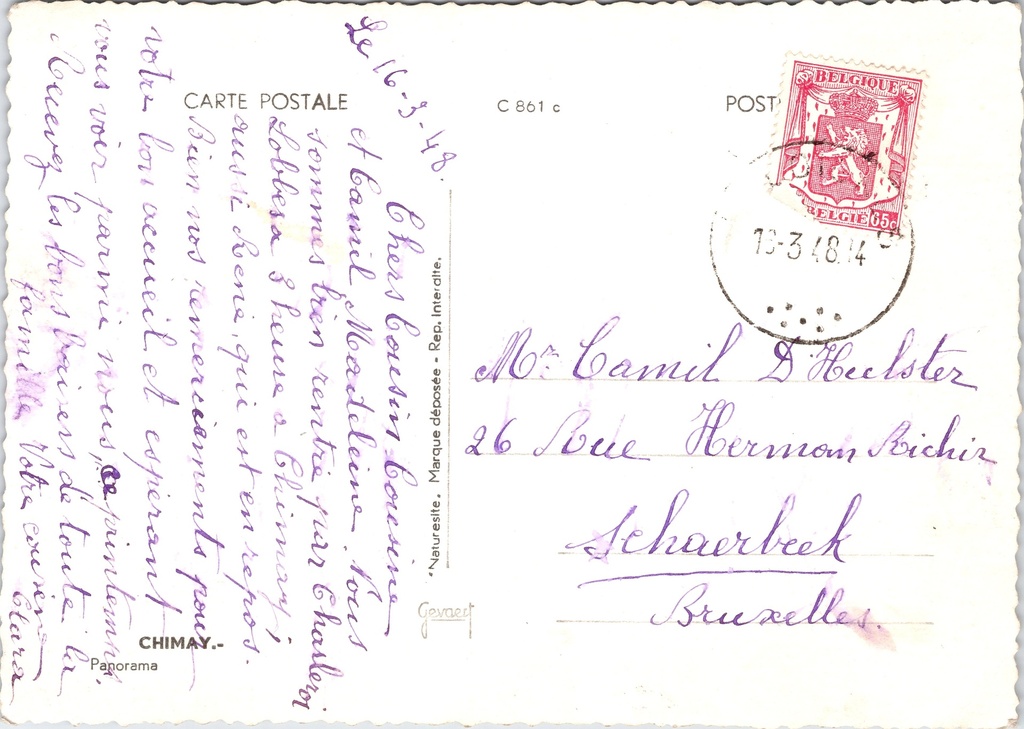 CARTE POSTALE
C 861 c
POST
BELGIQUE
BELGIE 65c
16-3 48.14
Le 16-3-48.
Chers Cousin Cousine
et Camil, Madeleine. Nous
sommes bien rentré par Charleroi
Lobbes a 8 heure a Chimay,
aussi Rene, qui est en repos.
Bien nos remerciements pour
votre bon accueil et esperant
vous voir parmi nous, ce printemps.
Recevez les bons baisers de toute la
famille Votre cousine
Clara
"Naturesite. Marque déposée - Rep. Interdite.
Gevaert
CHIMAY.-
Panorama
Mr. Camil D'Heelster
26 Rue Herman Richir
Schaerbeek
Bruxelles.